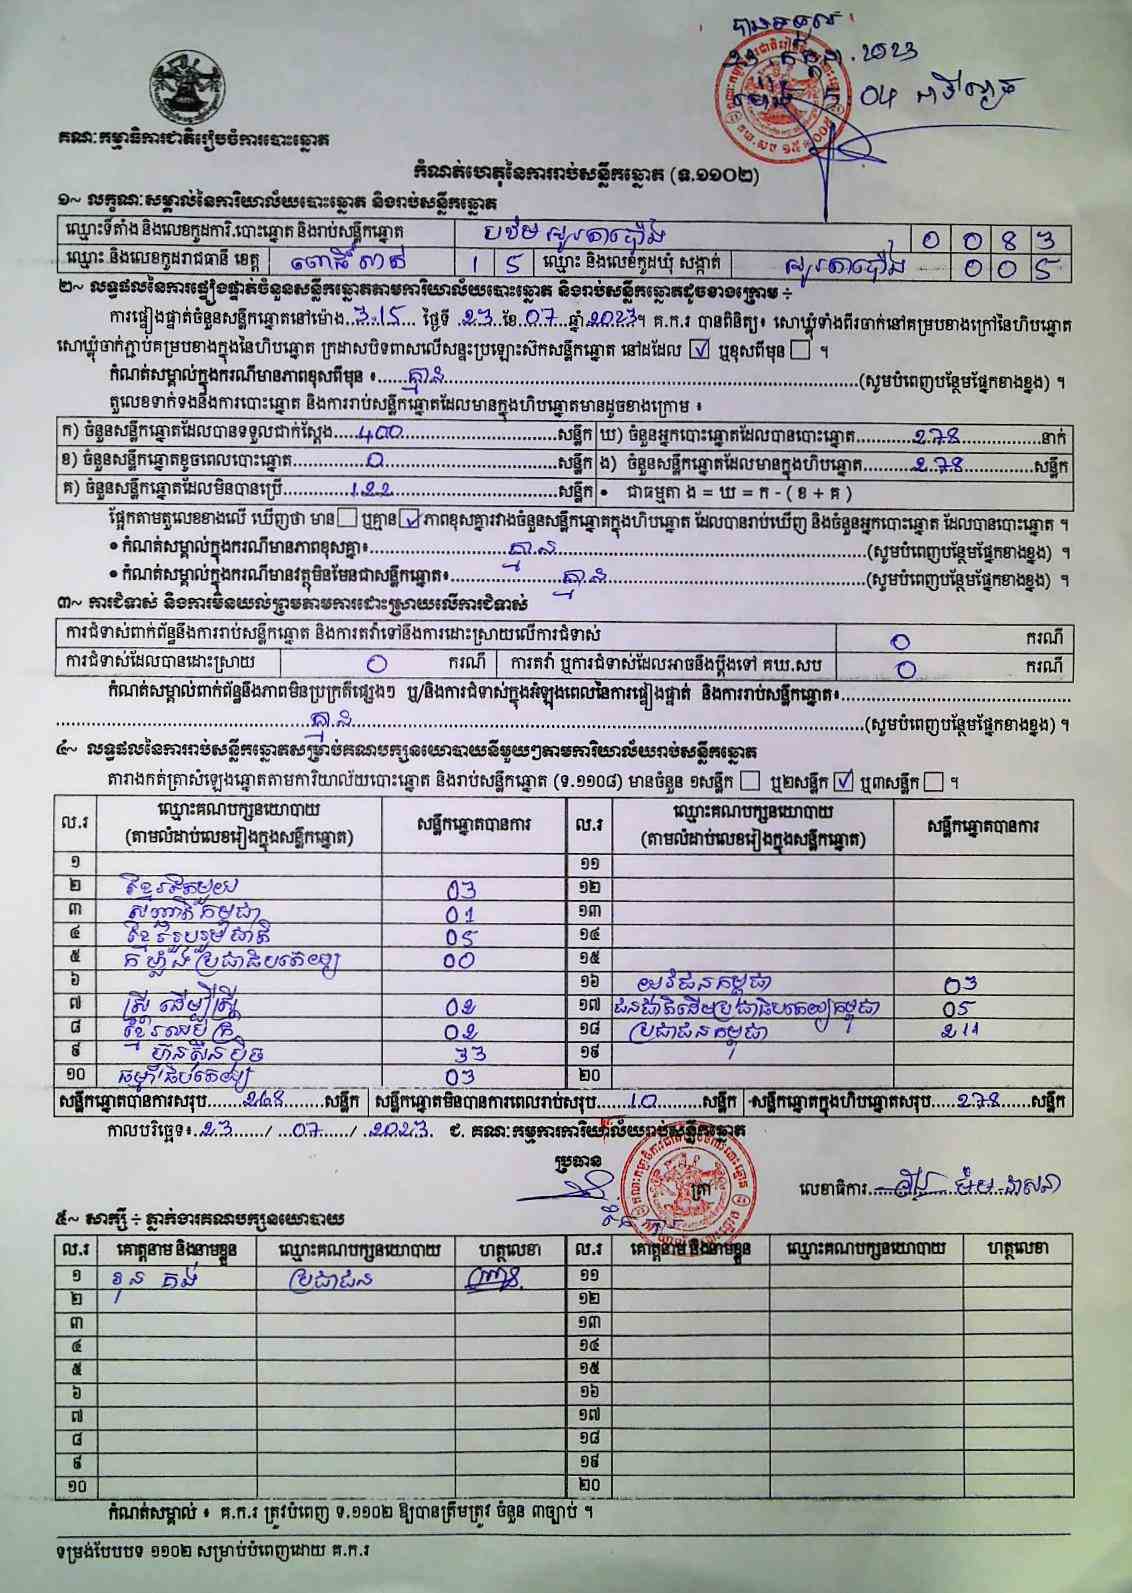 បានទទួល
គណៈកម្មាធិការជាតិរៀបចំការបោះឆ្នោត
កំណត់ហេតុនៃការរាប់សន្លឹកឆ្នោត (ទ.១១០២)
១~ លក្ខណៈសម្គាល់នៃការិយាល័យបោះឆ្នោត និងរាប់សន្លឹកឆ្នោត
ឈ្មោះទីតាំង និងលេខកូដការិ.បោះឆ្នោត និងរាប់សន្លឹកឆ្នោត 0 0 8 3
ឈ្មោះ និងលេខកូដរាជធានី ខេត្ត ពោធិ៍សាត់ 1 5 ឈ្មោះ និងលេខកូដឃុំ សង្កាត់ អូរតាប៉ោង 0 0 5
២~ លទ្ធផលនៃការផ្ទៀងផ្ទាត់ចំនួនសន្លឹកឆ្នោតតាមការិយាល័យបោះឆ្នោត និងរាប់សន្លឹកឆ្នោតដូចខាងក្រោម ÷
ការផ្ទៀងផ្ទាត់ចំនួនសន្លឹកឆ្នោតនៅម៉ោង 3:15 ថ្ងៃទី 23 ខែ 07 ឆ្នាំ 2023។ គ.ក.រ បានពិនិត្យ៖ សោឃ្លុំទាំងពីរចាក់នៅគម្របខាងក្រៅនៃហិបឆ្នោត
សោឃ្លុំចាក់ភ្ជាប់គម្របខាងក្នុងនៃហិបឆ្នោត ក្រដាសបិទពាសលើសន្ទះប្រឡោះស៊កសន្លឹកឆ្នោត នៅដដែល ☑ ឬខុសពីមុន ☐ ។
កំណត់សម្គាល់ក្នុងករណីមានភាពខុសពីមុន ៖ គ្មាន (សូមបំពេញបន្ថែមផ្នែកខាងខ្នង) ។
តួលេខទាក់ទងនឹងការបោះឆ្នោត និងការរាប់សន្លឹកឆ្នោតដែលមានក្នុងហិបឆ្នោតមានដូចខាងក្រោម ៖
ក) ចំនួនសន្លឹកឆ្នោតដែលបានទទួលជាក់ស្ដែង 400 សន្លឹក ឃ) ចំនួនអ្នកបោះឆ្នោតដែលបានបោះឆ្នោត 278 នាក់
ខ) ចំនួនសន្លឹកឆ្នោតខូចពេលបោះឆ្នោត 0 សន្លឹក ង) ចំនួនសន្លឹកឆ្នោតដែលមានក្នុងហិបឆ្នោត 278 សន្លឹក
គ) ចំនួនសន្លឹកឆ្នោតដែលមិនបានប្រើ 122 សន្លឹក • ជាធម្មតា ង = ឃ = ក - ( ខ + គ )
ផ្អែកតាមតួលេខខាងលើ ឃើញថា មាន ☐ ឬគ្មាន ☑ ភាពខុសគ្នារវាងចំនួនសន្លឹកឆ្នោតក្នុងហិបឆ្នោត ដែលបានរាប់ឃើញ និងចំនួនអ្នកបោះឆ្នោត ដែលបានបោះឆ្នោត ។
• កំណត់សម្គាល់ក្នុងករណីមានភាពខុសគ្នា៖ គ្មាន (សូមបំពេញបន្ថែមផ្នែកខាងខ្នង) ។
• កំណត់សម្គាល់ក្នុងករណីមានវត្ថុមិនមែនជាសន្លឹកឆ្នោត៖ គ្មាន (សូមបំពេញបន្ថែមផ្នែកខាងខ្នង) ។
៣~ ការជំទាស់ និងការមិនយល់ព្រមតាមការដោះស្រាយលើការជំទាស់
ការជំទាស់ពាក់ព័ន្ធនឹងការរាប់សន្លឹកឆ្នោត និងការតវ៉ាទៅនឹងការដោះស្រាយលើការជំទាស់ 0 ករណី
ការជំទាស់ដែលបានដោះស្រាយ 0 ករណី ការតវ៉ា ឬការជំទាស់ដែលអាចនឹងប្ដឹងទៅ គឃ.សប 0 ករណី
កំណត់សម្គាល់ពាក់ព័ន្ធនឹងភាពមិនប្រក្រតីផ្សេងៗ ឬ/និងការជំទាស់ក្នុងអំឡុងពេលនៃការផ្ទៀងផ្ទាត់ និងការរាប់សន្លឹកឆ្នោត៖
គ្មាន (សូមបំពេញបន្ថែមផ្នែកខាងខ្នង) ។
៤~ លទ្ធផលនៃការរាប់សន្លឹកឆ្នោតសម្រាប់គណបក្សនយោបាយនីមួយៗតាមការិយាល័យរាប់សន្លឹកឆ្នោត
តារាងកត់ត្រាសំឡេងឆ្នោតតាមការិយាល័យបោះឆ្នោត និងរាប់សន្លឹកឆ្នោត (ទ.១១០៨) មានចំនួន ១សន្លឹក ☐ ឬ២សន្លឹក ☑ ឬ៣សន្លឹក ☐ ។
ល.រ ឈ្មោះគណបក្សនយោបាយ (តាមលំដាប់លេខរៀងក្នុងសន្លឹកឆ្នោត) សន្លឹកឆ្នោតបានការ ល.រ ឈ្មោះគណបក្សនយោបាយ (តាមលំដាប់លេខរៀងក្នុងសន្លឹកឆ្នោត) សន្លឹកឆ្នោតបានការ
១ ១១
២ ខ្មែរតែមួយ 03 ១២
៣ សញ្ជាតិកម្ពុជា 01 ១៣
៤ ខ្មែររួបរួមជាតិ 05 ១៤
៥ កម្លាំងប្រជាធិបតេយ្យ 00 ១៥
៦ ១៦ យុវជនកម្ពុជា 03
៧ ស្ត្រីដើម្បីស្ត្រី 02 ១៧ ជនជាតិដើមប្រជាធិបតេយ្យកម្ពុជា 05
៨ ខ្មែរឈប់ក្រ 02 ១៨ ប្រជាជនកម្ពុជា 211
៩ ហ៊្វុនស៊ិនប៉ិច 33 ១៩
១០ ធម្មាធិបតេយ្យ 03 ២០
សន្លឹកឆ្នោតបានការសរុប 268 សន្លឹក សន្លឹកឆ្នោតមិនបានការពេលរាប់សរុប 10 សន្លឹក សន្លឹកឆ្នោតក្នុងហិបឆ្នោតសរុប 278 សន្លឹក
កាលបរិច្ឆេទ៖ 23 / 07 / 2023 ជ. គណៈកម្មការការិយាល័យរាប់សន្លឹកឆ្នោត
ប្រធាន
ត្រា
លេខាធិការ
៥~ សាក្សី ÷ ភ្នាក់ងារគណបក្សនយោបាយ
ល.រ គោត្តនាម និងនាមខ្លួន ឈ្មោះគណបក្សនយោបាយ ហត្ថលេខា ល.រ គោត្តនាម និងនាមខ្លួន ឈ្មោះគណបក្សនយោបាយ ហត្ថលេខា
១ ឃុន គង់ ប្រជាជន ១១
២ ១២
៣ ១៣
៤ ១៤
៥ ១៥
៦ ១៦
៧ ១៧
៨ ១៨
៩ ១៩
១០ ២០
កំណត់សម្គាល់ ៖ គ.ក.រ ត្រូវបំពេញ ទ.១១០២ ឱ្យបានត្រឹមត្រូវ ចំនួន ៣ច្បាប់ ។
ទម្រង់បែបបទ ១១០២ សម្រាប់បំពេញដោយ គ.ក.រ